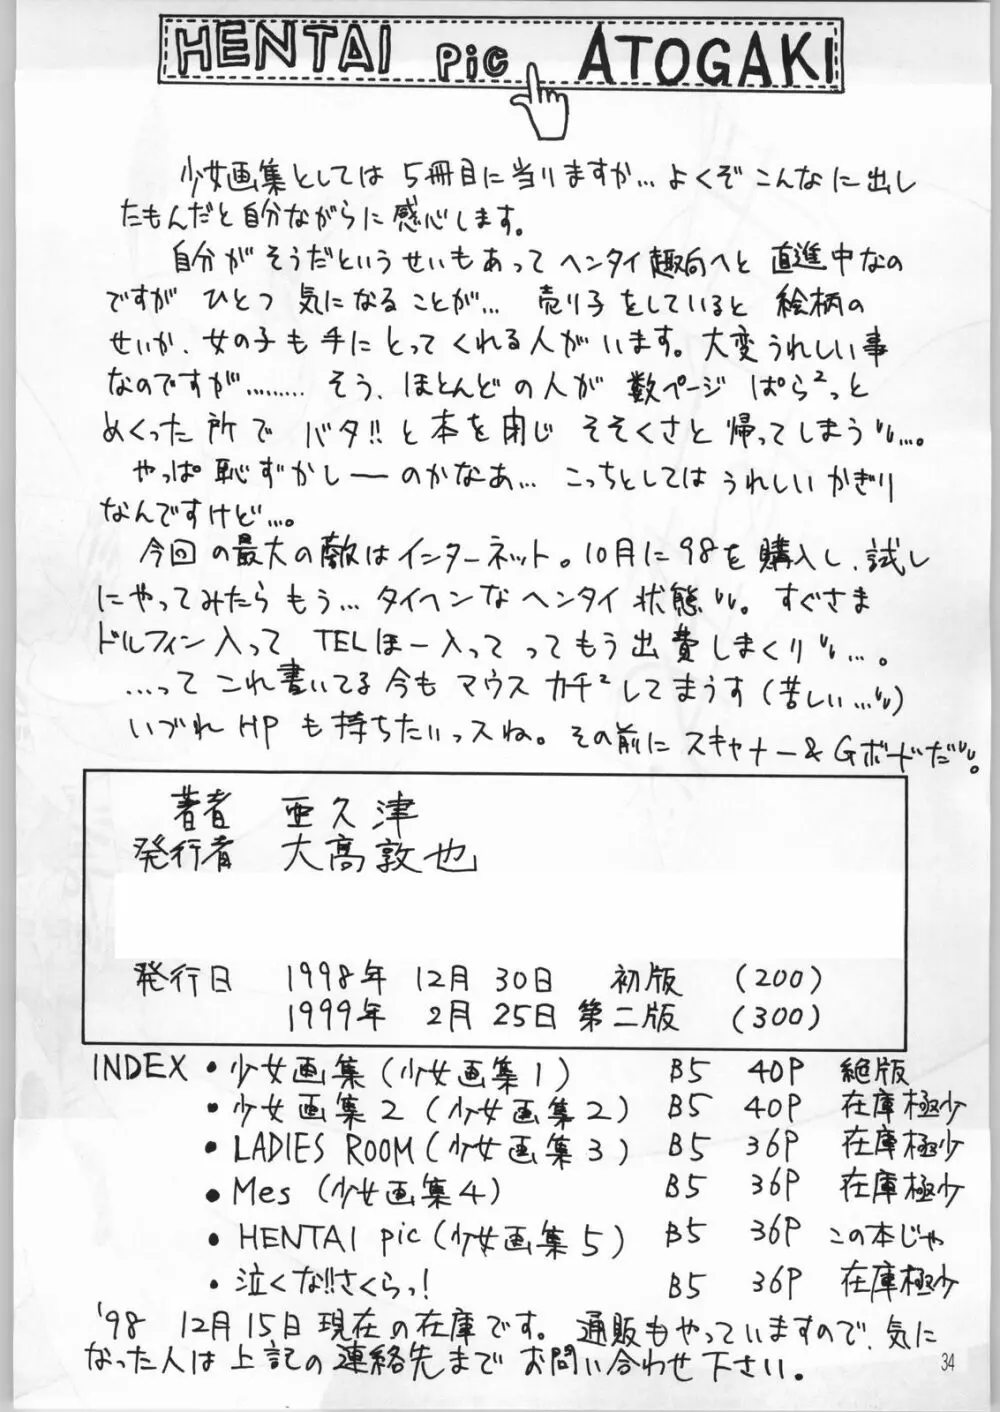 HENTAI pic ATOGAKI
少女画集としては5冊目に当りますか…よくぞこんなに出し
たもんだと自分ながらに感心します。
自分がそうだというせいもあってヘンタイ趣向へと直進中なの
ですが ひとつ 気になることが… 売り子をしていると 絵柄の
せいか、女の子も手にとってくれる人がいます。大変うれしい事
なのですが……… そう、ほとんどの人が 数ページ ぱら²っと
めくった所で バタ!!と本を閉じ そそくさと帰ってしまう…。
やっぱ恥ずかしーのかなあ… こっちとしてはうれしいかぎり
なんですけど…。
今回の最大の敵はインターネット。10月に98を購入し、試し
にやってみたらもう… タイヘンなヘンタイ状態。すぐさま
ドルフィン入って TELほー入って ってもう出費しまくり…。
…って これ書いてる今も マウス カチ²してまうす(苦しい…)
いづれ HP も持ちたいっスね。その前にスキャナー&Gボードだ。
著者 亜久津
発行者 大高敦也
発行日 1998年 12月 30日 初版 (200)
1999年 2月 25日 第二版 (300)
INDEX ・少女画集(少女画集1) B5 40P 絶版
・少女画集2 (少女画集2) B5 40P 在庫極少
・LADIES ROOM(少女画集3) B5 36P 在庫極少
・Mes (少女画集4) B5 36P 在庫極少
・HENTAI pic(少女画集5) B5 36P この本じゃ
・泣くな!!さくらっ! B5 36P 在庫極少
'98 12月15日現在の在庫です。通販もやっていますので、気に
なった人は上記の連絡先までお問い合わせ下さい.
34